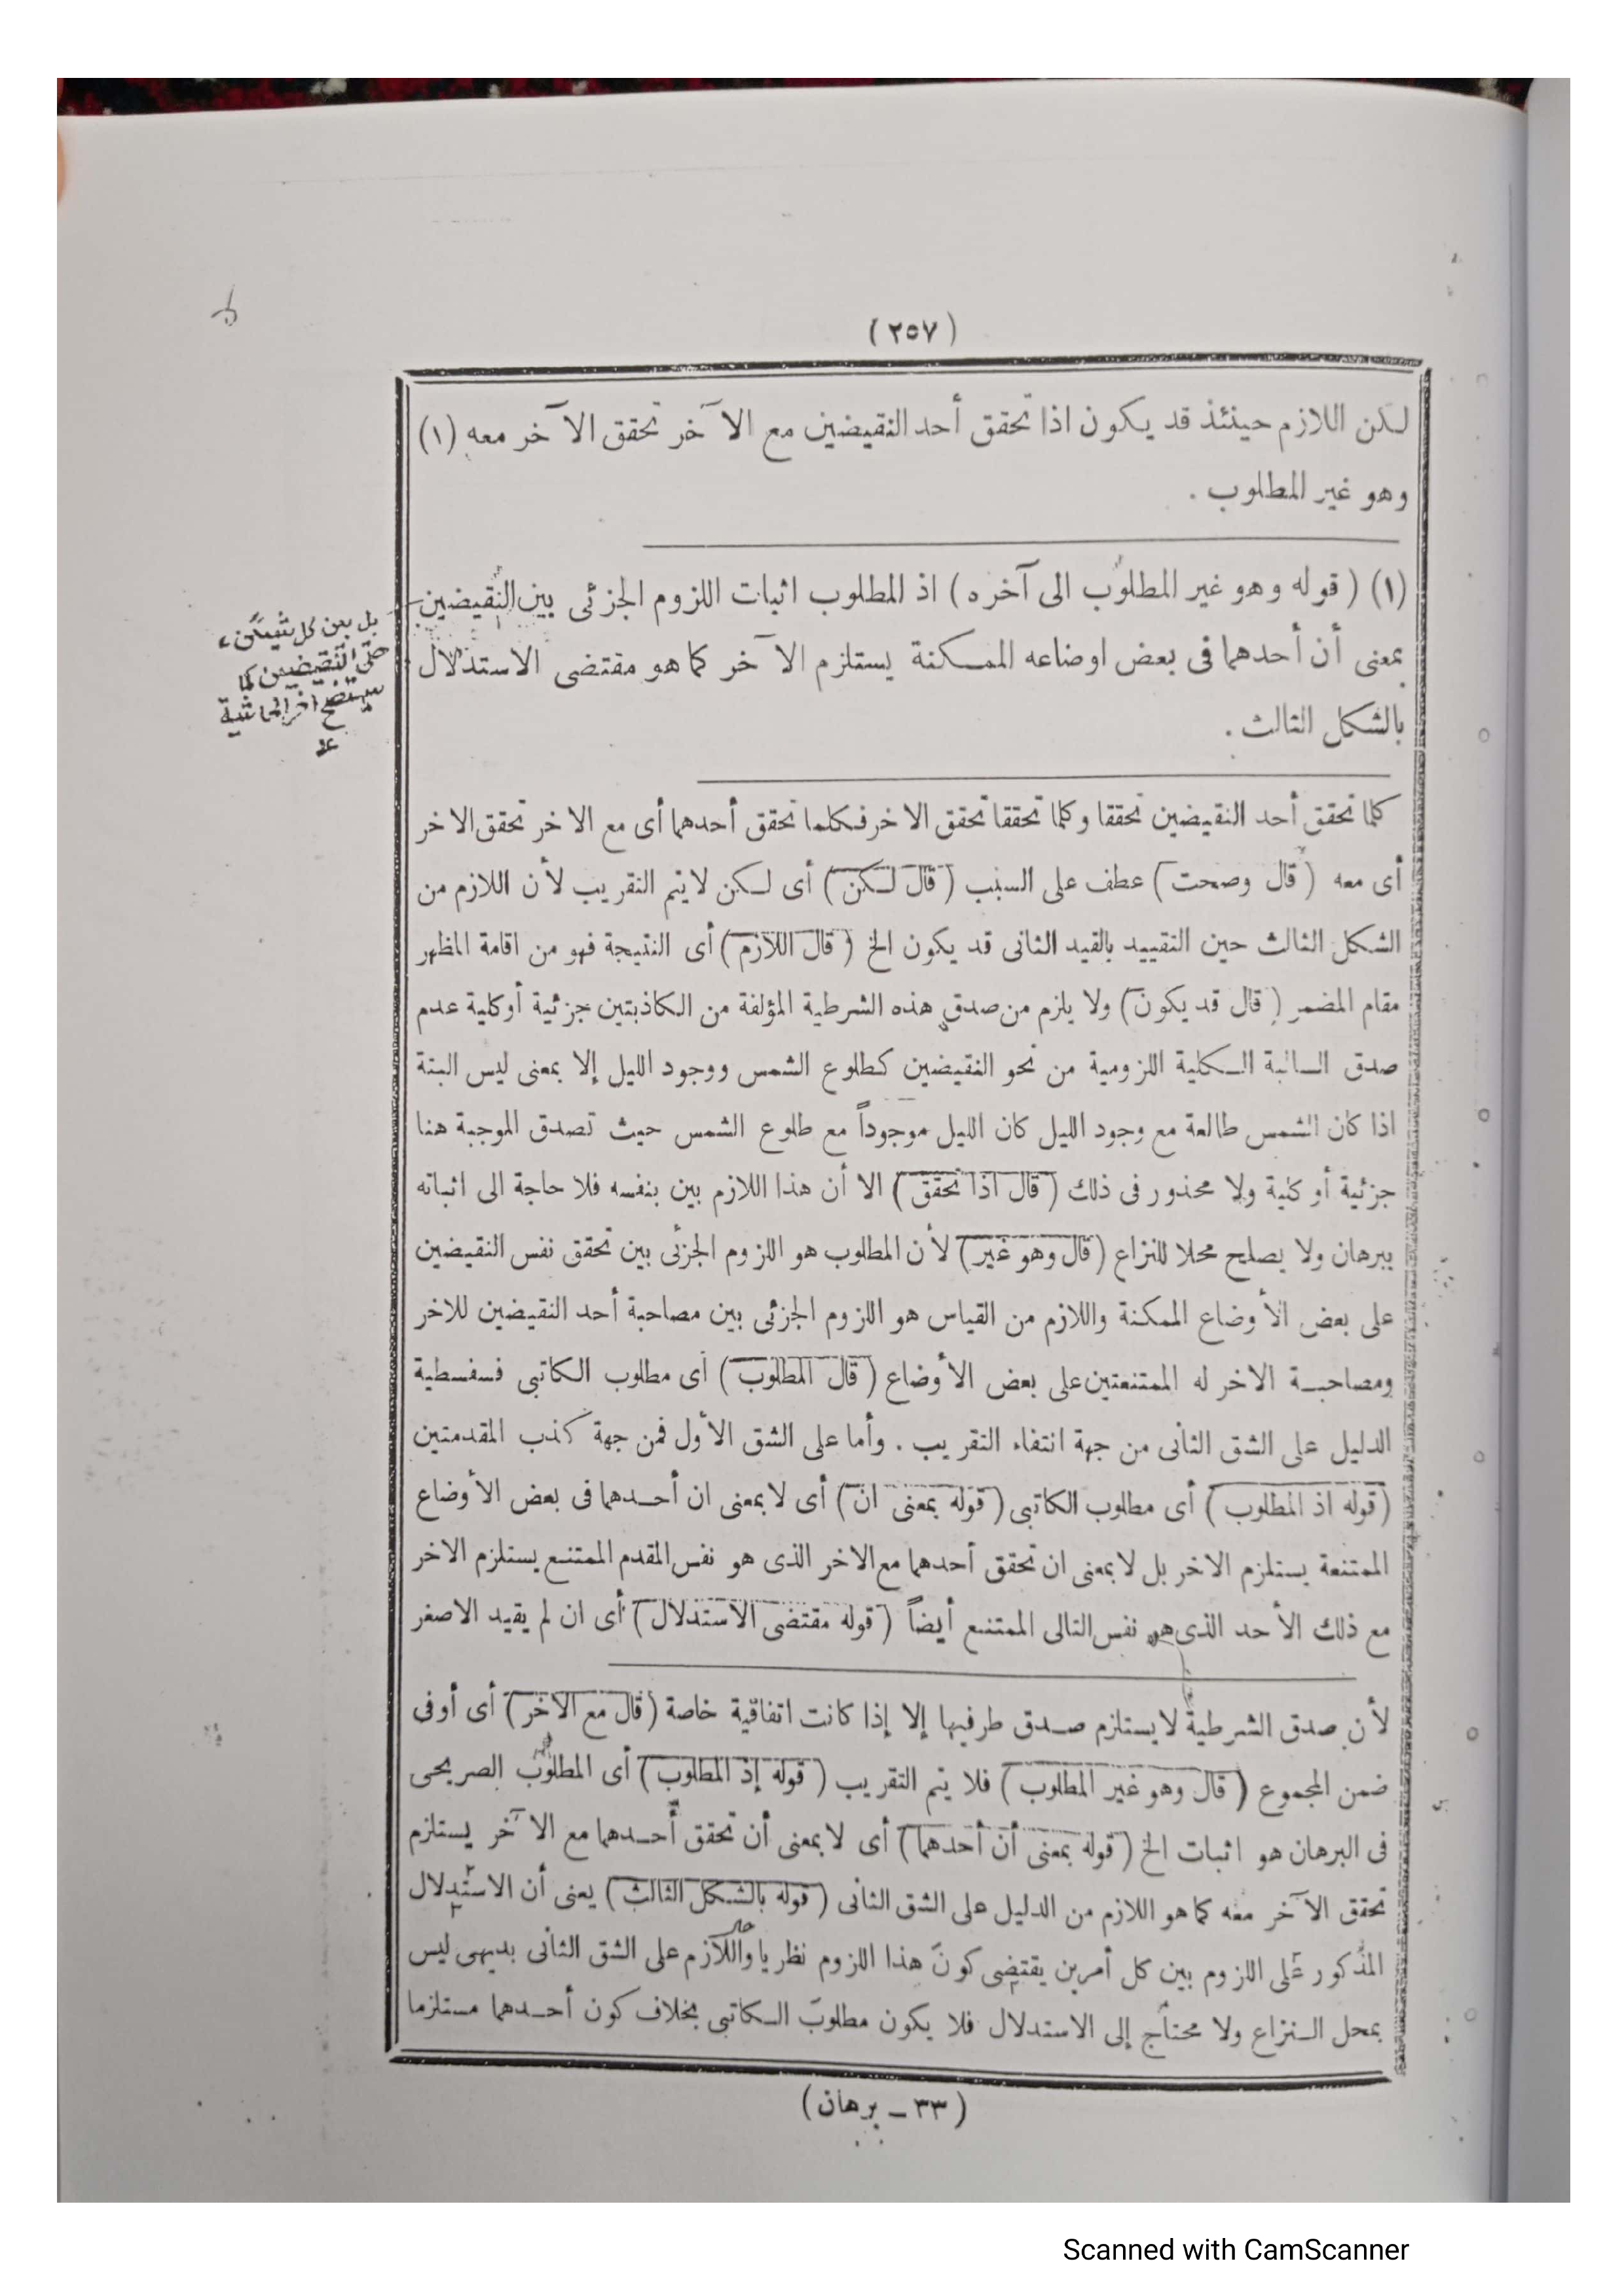 (٢٥٧)
لكن اللازم حينئذ قد يكون اذا تحقق أحد النقيضين مع الآخر تحقق الآخر معه (١)
وهو غير المطلوب .
(١) (قوله وهو غير المطلوب الى آخره) اذ المطلوب اثبات اللزوم الجزئى بين النقيضين
بمعنى أن أحدهما فى بعض اوضاعه الممكنة يستلزم الآخر كما هو مقتضى الاستدلال
بالشكل الثالث .
بل بين كل شيئين
حتى النقيضين كما
سيتضح اخر الحاشية
كلما تحقق أحد النقيضين تحققا وكلما تحققا تحقق الاخر فكلما تحقق أحدهما أى مع الاخر تحقق الاخر
أى معه (قال وصحت) عطف على السبب (قال لكن) أى لكن لا يتم التقريب لأن اللازم من
الشكل الثالث حين التقييد بالقيد الثانى قد يكون الخ (قال اللازم) أى النتيجة فهو من اقامة المظهر
مقام المضمر (قال قد يكون) ولا يلزم من صدق هذه الشرطية المؤلفة من الكاذبتين جزئية أو كلية عدم
صدق السالبة الكلية اللزومية من نحو النقيضين كطلوع الشمس ووجود الليل إلا بمعنى ليس البتة
اذا كان الشمس طالعة مع وجود الليل كان الليل موجوداً مع طلوع الشمس حيث تصدق الموجبة هنا
جزئية أو كلية ولا محذور فى ذلك (قال اذا تحقق) الا أن هذا اللازم بين بنفسه فلا حاجة الى اثباته
ببرهان ولا يصلح محلا للنزاع (قال وهو غير) لأن المطلوب هو اللزوم الجزئى بين تحقق نفس النقيضين
على بعض الأوضاع الممكنة واللازم من القياس هو اللزوم الجزئى بين مصاحبة أحد النقيضين للاخر
ومصاحبة الاخر له الممتنعتين على بعض الأوضاع (قال المطلوب) أى مطلوب الكاتبى فسفسطية
الدليل على الشق الثانى من جهة انتفاء التقريب . وأما على الشق الأول فمن جهة كذب المقدمتين
(قوله اذ المطلوب) أى مطلوب الكاتبى (قوله بمعنى ان) أى لا بمعنى ان أحدهما فى بعض الأوضاع
الممتنعة يستلزم الاخر بل لا بمعنى ان تحقق أحدهما مع الاخر الذى هو نفس المقدم الممتنع يستلزم الاخر
مع ذلك الأحد الذى هو نفس التالى الممتنع أيضاً (قوله مقتضى الاستدلال) أى ان لم يقيد الاصغر
لأن صدق الشرطية لا يستلزم صدق طرفيها إلا إذا كانت اتفاقية خاصة (قال مع الآخر) أى أو فى
ضمن المجموع (قال وهو غير المطلوب) فلا يتم التقريب (قوله إذ المطلوب) أى المطلوب الصريحى
فى البرهان هو اثبات الخ (قوله بمعنى أن أحدهما) أى لا بمعنى أن تحقق أحدهما مع الآخر يستلزم
تحقق الآخر معه كما هو اللازم من الدليل على الشق الثانى (قوله بالشكل الثالث) يعنى أن الاستدلال
المذكور على اللزوم بين كل أمرين يقتضى كون هذا اللزوم نظريا واللازم على الشق الثانى بديهى ليس
بمحل النزاع ولا محتاج إلى الاستدلال فلا يكون مطلوب الكاتبى بخلاف كون أحدهما مستلزما
(٣٣ ـ برهان)
Scanned with CamScanner